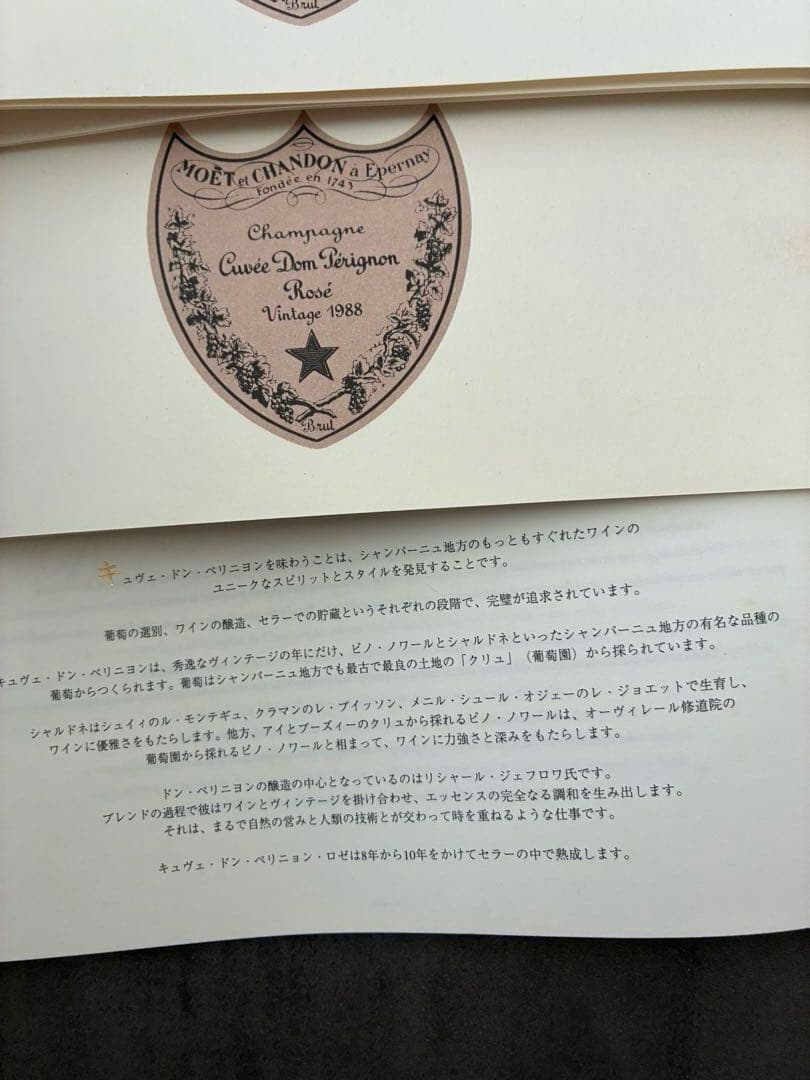 Brut
MOËT et CHANDON à Epernay
Fondée en 1743
Champagne
Cuvée Dom Pérignon
Rosé
Vintage 1988
Brut
キュヴェ・ドン・ペリニヨンを味わうことは、シャンパーニュ地方のもっともすぐれたワインの
ユニークなスピリットとスタイルを発見することです。
葡萄の選別、ワインの醸造、セラーでの貯蔵というそれぞれの段階で、完璧が追求されています。
キュヴェ・ドン・ペリニヨンは、秀逸なヴィンテージの年にだけ、ピノ・ノワールとシャルドネといったシャンパーニュ地方の有名な品種の
葡萄からつくられます。葡萄はシャンパーニュ地方でも最古で最良の土地の「クリュ」（葡萄園）から採られています。
シャルドネはシュイィのル・モンテギュ、クラマンのレ・ブイッソン、メニル・シュール・オジェーのレ・ジョエットで生育し、
ワインに優雅さをもたらします。他方、アイとブーズィーのクリュから採れるピノ・ノワールは、オーヴィレール修道院の
葡萄園から採れるピノ・ノワールと相まって、ワインに力強さと深みをもたらします。
ドン・ペリニヨンの醸造の中心となっているのはリシャール・ジェフロワ氏です。
ブレンドの過程で彼はワインとヴィンテージを掛け合わせ、エッセンスの完全なる調和を生み出します。
それは、まるで自然の営みと人類の技術とが交わって時を重ねるような仕事です。
キュヴェ・ドン・ペリニョン・ロゼは8年から10年をかけてセラーの中で熟成します。